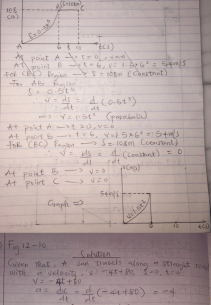 108
S=108m
S=0.5t³
A
6 8 10
t(s)
At point A → t=0, v=0
At point B → t=6, v=1.5×6²=54m/s
For (BC) Region → S=108m (constant)
For AB Region
S=0.5t³
v = ds/dt = d/dt (0.5t³)
⇒ v=1.5t² (parabolic)
At point A → t=0, v=0
At point B → t=6, v=1.5×6²=54m/s
for (BC) → S=108m (constant)
v = ds/dt = d/dt (constant) = 0
At point B → v=0
At point C → v=0
v(m/s)
54m/s
Graph ⇒
v=1.5t²
t(s)
Fig 12-10
Solution
Given that: A car travels along a straight road
with a velocity, v=-4t+80
v=-4t+80
a = dv/dt = d/dt (-4t+80) = -4